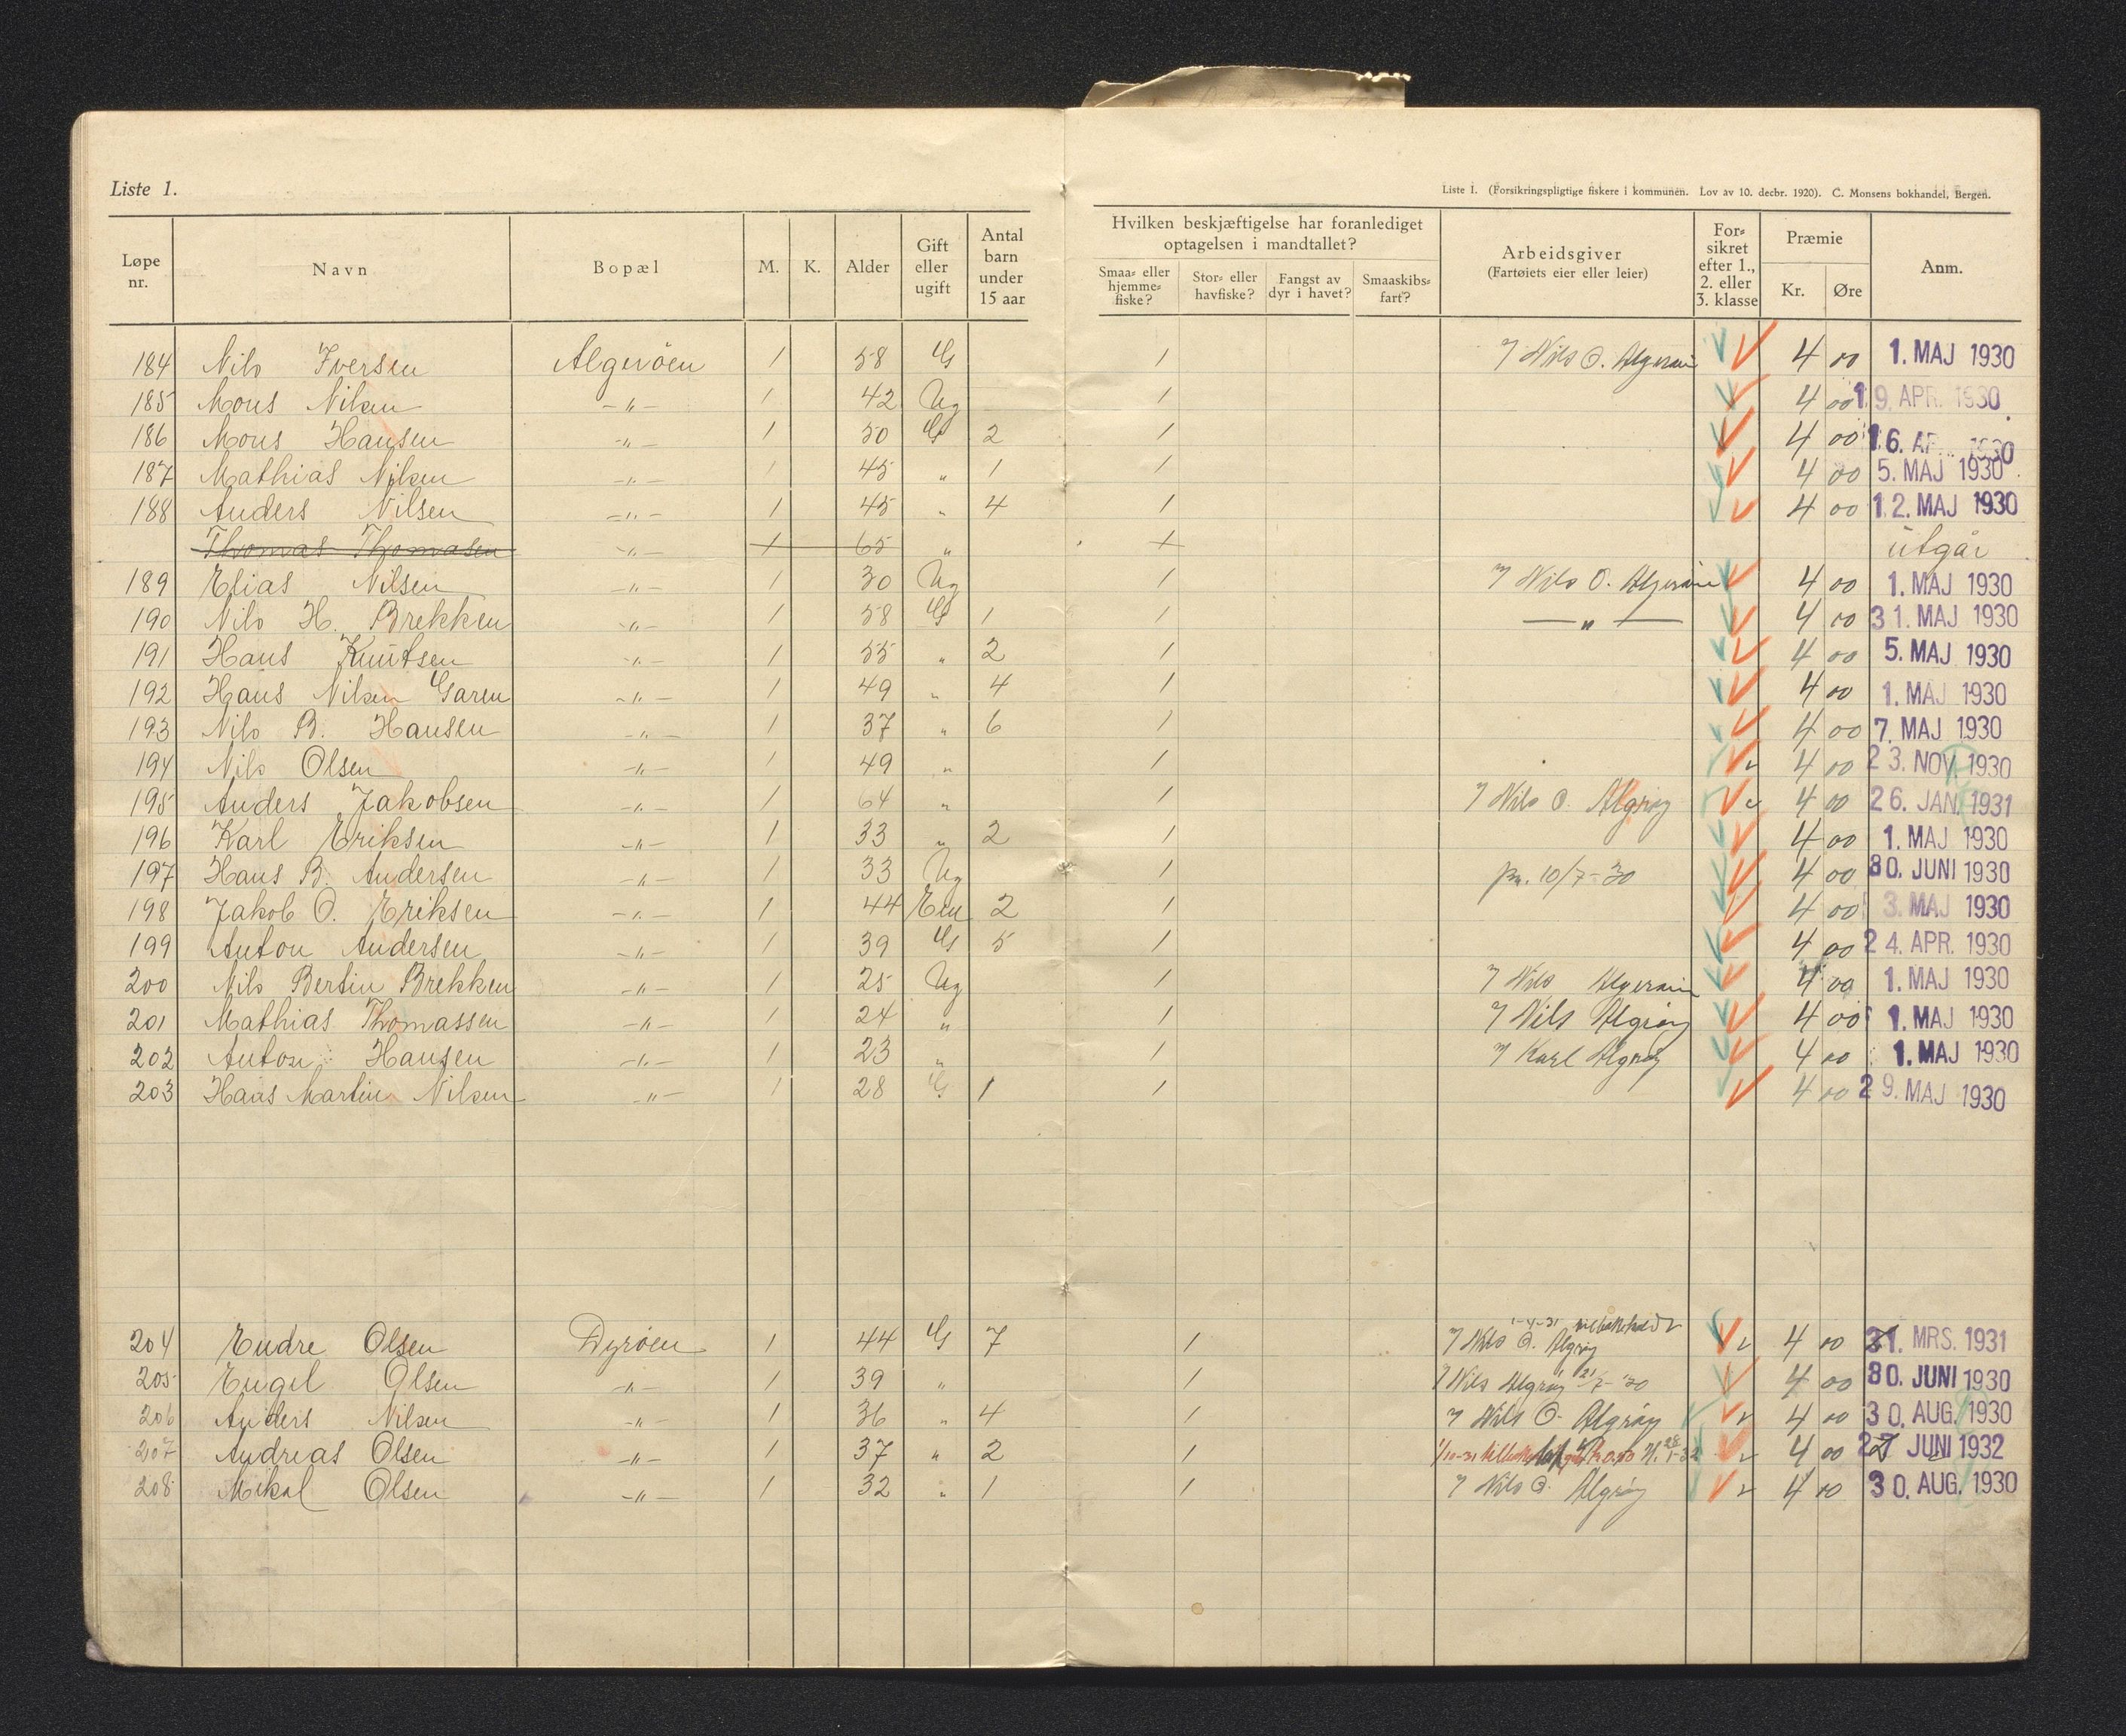 Liste 1.
Liste 1. (Forsikringspligtige fiskere i kommunen. Lov av 10. decbr. 1920). C. Monsens bokhandel, Bergen.
Løpe nr. Navn Bopæl M. K. Alder Gift eller ugift Antal barn under 15 aar Hvilken beskjæftigelse har foranlediget optagelsen i mandtallet? Smaa- eller hjemmefiske? Stor- eller havfiske? Fangst av dyr i havet? Smaaskibsfart? Arbeidsgiver (Fartøiets eier eller leier) Forsikret efter 1., 2. eller 3. klasse Præmie Kr. Øre Anm.
184 Nils Iversen Algerøen 1 58 G 1 Nils O. Algerøin 4 00 1. MAJ 1930
185 Mons Nilsen -"- 1 42 Ug 1 4 00 19. APR. 1930
186 Mons Hansen -"- 1 50 G 2 1 4 00 16. AP 1930
187 Mathias Nilsen -"- 1 45 " 1 1 4 00 5. MAJ 1930
188 Anders Nilsen -"- 1 45 " 4 1 4 00 12. MAJ 1930
Thomas Thomasen -"- 1 65 " 1 utgår
189 Elias Nilsen -"- 1 30 Ug 1 Nils O. Algerøin 4 00 1. MAJ 1930
190 Nils H. Brekken -"- 1 58 G 1 1 -"- 4 00 31. MAJ 1930
191 Hans Knutsen -"- 1 55 " 2 1 4 00 5. MAJ 1930
192 Hans Nilsen Garen -"- 1 49 " 4 1 4 00 1. MAJ 1930
193 Nils B. Hansen -"- 1 37 " 6 1 4 00 7. MAJ 1930
194 Nils Olsen -"- 1 49 " 1 4 00 23. NOV. 1930
195 Anders Jakobsen -"- 1 64 " 1 Nils O. Algrøy 4 00 26. JAN. 1931
196 Karl Eriksen -"- 1 33 " 2 1 4 00 1. MAJ 1930
197 Hans B. Andersen -"- 1 33 Ug 1 pr. 10/7-30 4 00 30. JUNI 1930
198 Jakob O. Eriksen -"- 1 44 Em 2 1 4 00 3. MAJ 1930
199 Anton Andersen -"- 1 39 G 5 1 4 00 24. APR. 1930
200 Nils Bertin Brekken -"- 1 25 Ug 1 Nils Algerøin 4 00 1. MAJ 1930
201 Mathias Thomassen -"- 1 24 " 1 Nils Algrøy 4 00 1. MAJ 1930
202 Anton Hansen -"- 1 23 " 1 Karl Algrøy 4 00 1. MAJ 1930
203 Hans Martin Nilsen -"- 1 28 G 1 1 4 00 29. MAJ 1930
204 Endre Olsen Dyrøen 1 44 G 7 1 1-4-31 Nils O. Algrøy 4 00 31. MRS. 1931
205 Engel Olsen -"- 1 39 " 1 Nils Algrøy 21/7-30 4 00 30. JUNI 1930
206 Anders Nilsen -"- 1 36 " 4 1 Nils O. Algrøy 4 00 30. AUG. 1930
207 Andreas Olsen -"- 1 37 " 2 1 4 00 27 JUNI 1932
208 Mikal Olsen -"- 1 32 " 1 1 Nils O. Algrøy 4 00 30. AUG. 1930